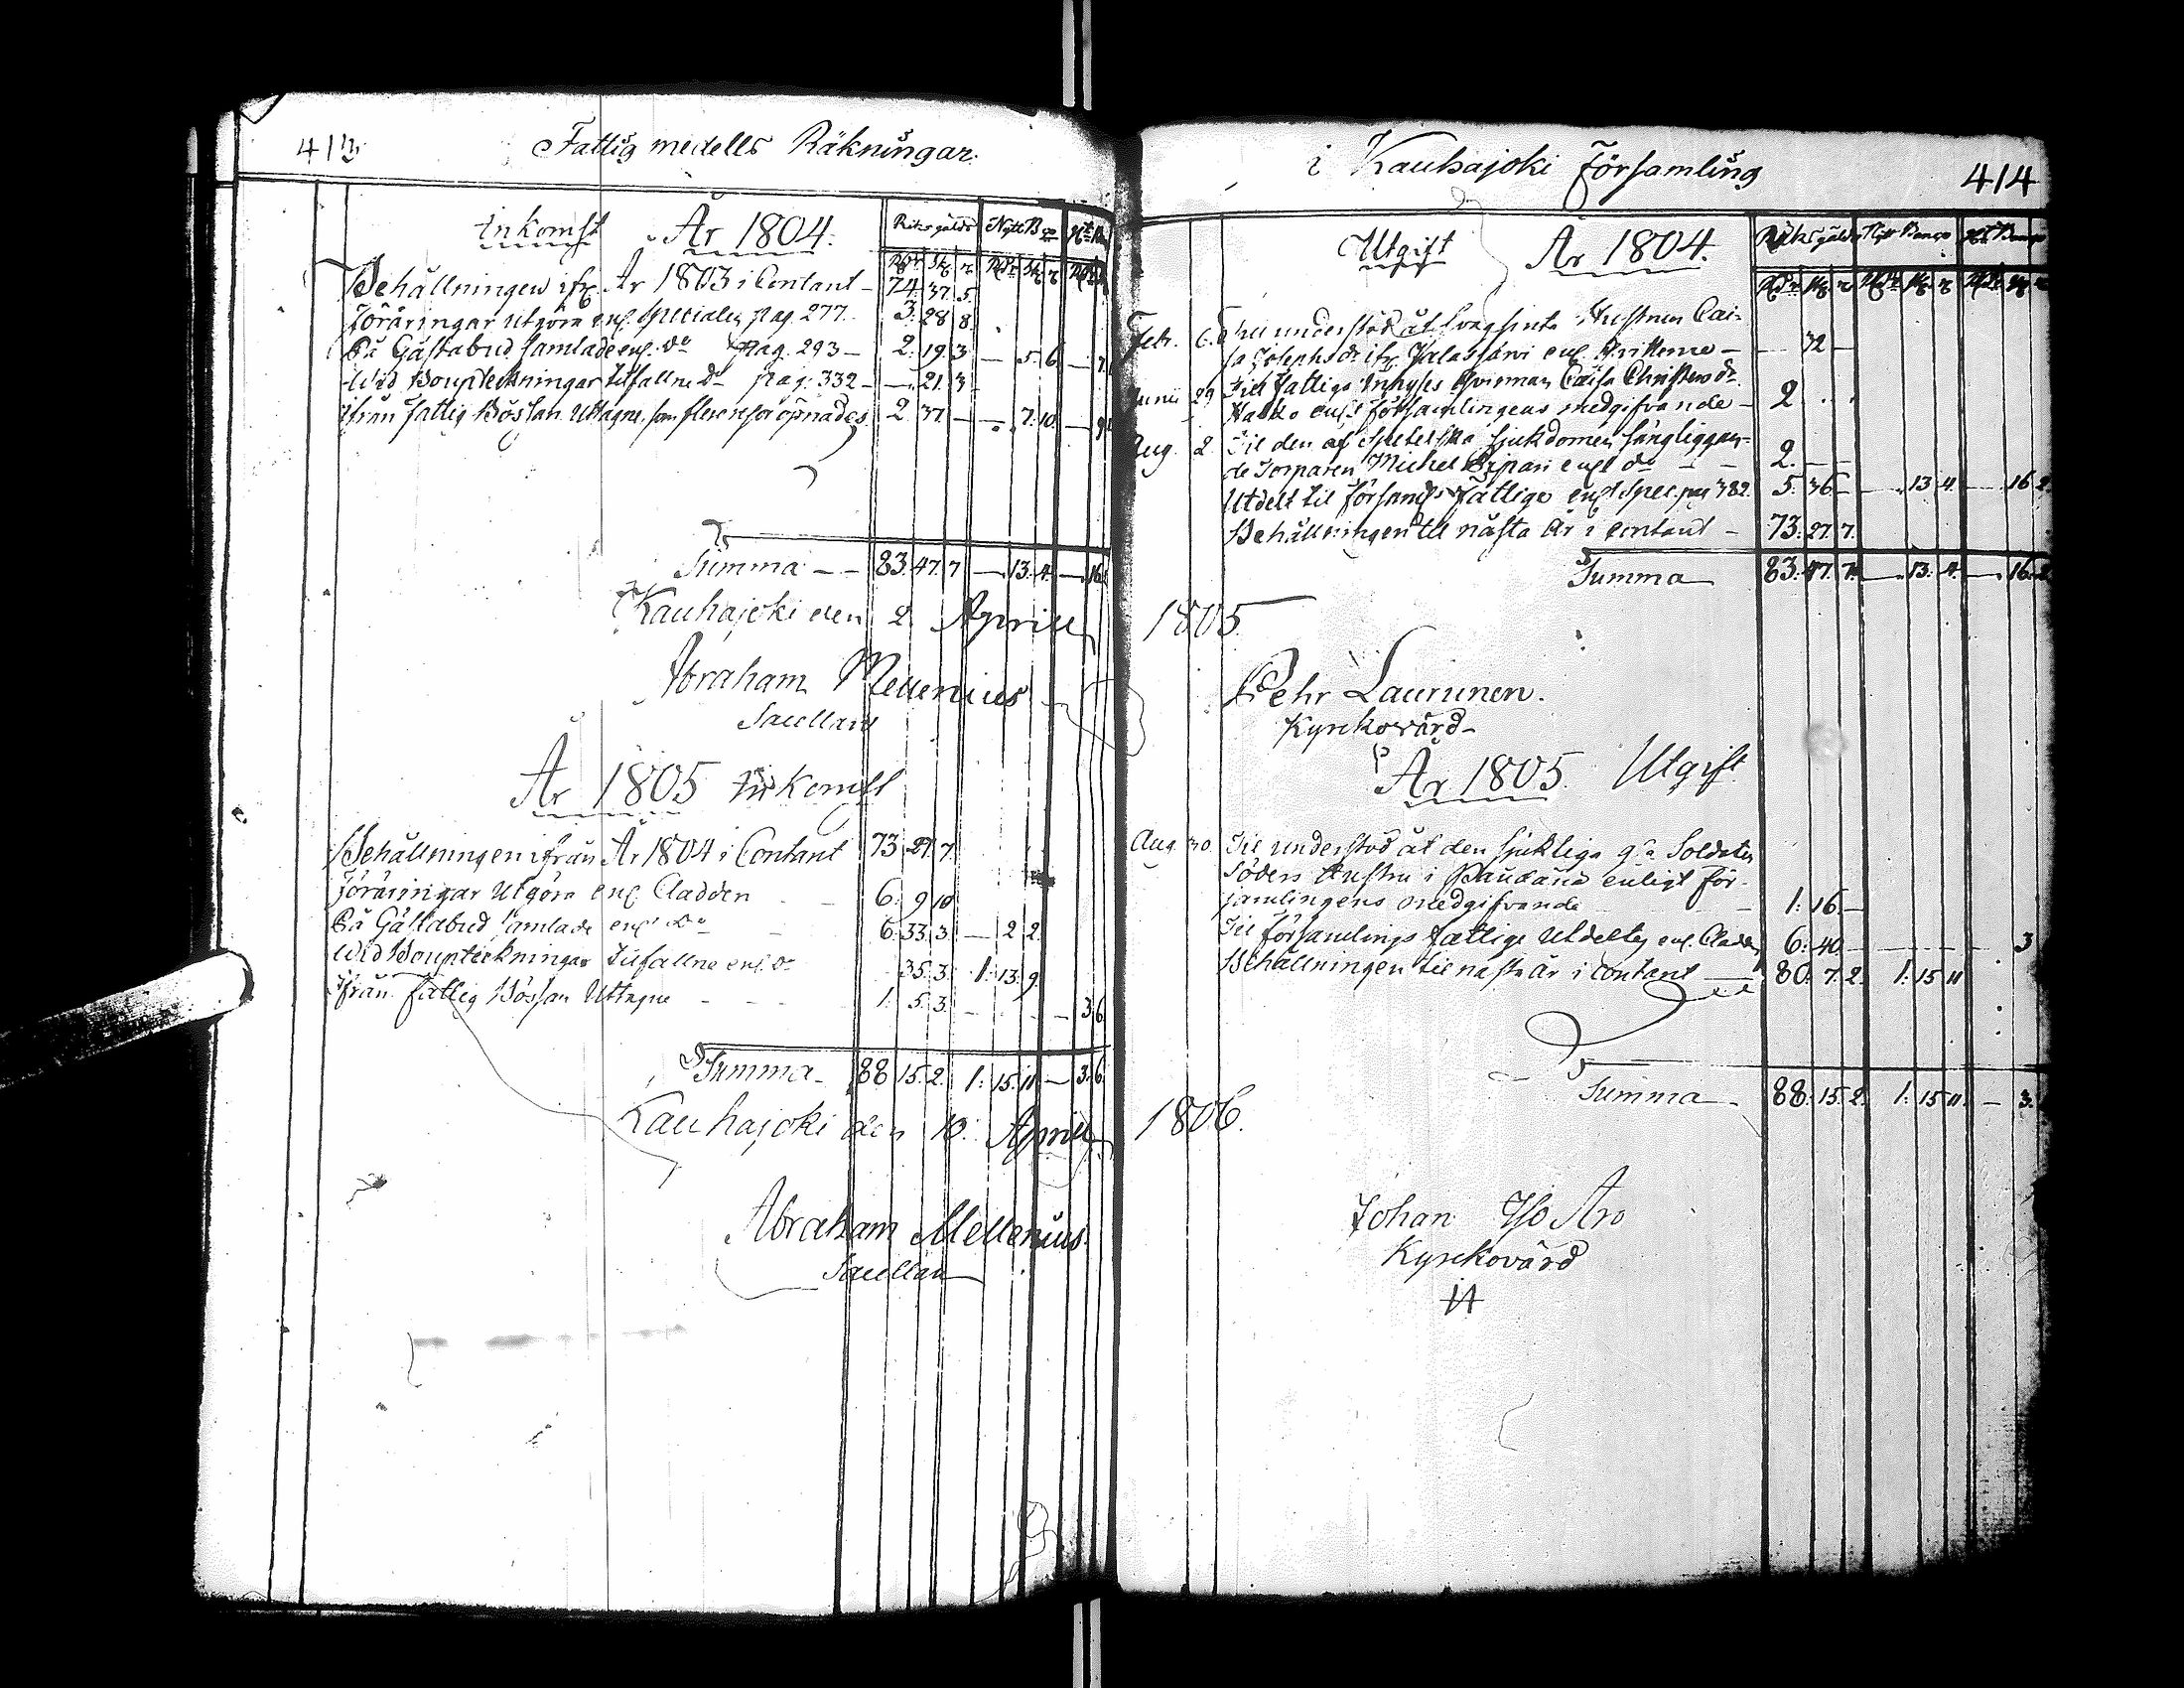 413
Fattig medells Räkningar
Inkomst År 1804.
Riksgälds Nytt Bco
Behållningen ifr. År 1803 i Contant 74 37 5
Föräringar utgöra enl. specialen pag. 277. 3. 28 8.
På Gästabud samlade enl. do pag. 293 2. 19. 3 — 5. 6
Wid Bouptekningar tilfallne do pag. 332 — 21. 3
ifrån fattig Bössan Uttagne, som öpnades 2 37. — — 7. 10
Summa 83. 47. 7 — 13. 4. — 16
Kauhajoki den 2 Aprill
Abraham Mellenius
Sacellan
År 1805 Inkomst
Behållningen ifrån År 1804 i Contant 73 27 7
Föräringar Utgöra enl. Cladden 6. 9 10
På Gästabud samlade enl. do 6. 33. 3. — 2 2.
Wid Bouptekningar tilfallne enl. do 35. 3. 1. 13. 9.
ifrån fattig Bössan Uttagne 1. 5. 3. — 3 6
Summa 88 15. 2. 1. 15. 11 — 3. 6
Kauhajoki den 10. Aprill
Abraham Mellenius
Sacellan
i Kauhajoki Församling
414
Utgift År 1804.
Riksgälds Nytt Banco
Febr. 6.
32 —
Junii 29 Till fattiga Inhyses Caisa
enl. församlingens medgifvande 2
Aug. 2. Til den af Spetelska sjukdomen sängliggan-
de Torparen Michel enl do 2. —
Utdelt til församls fattige enl Spec. pag 382. 5. 36 — 13. 4. — 16 2
Behållningen til nästa År i contant 73. 27. 7.
Summa 83. 47. 7. — 13. 4. — 16. 2
1805
Pehr Laurunen.
Kyrckovärd
År 1805. Utgift
Aug. 30. Til understöd åt den sjukliga Soldaten
Söders Hustru i enligt för-
samlingens medgifvande 1. 16. —
Til församlings fattige Utdelte enl. Cladden 6. 40. — 3
Behållningen til nästa År i contant 80. 7. 2. 1. 15 11
Summa 88. 15. 2. 1. 15 11. — 3.
1806.
Johan Aro
Kyrckovärd